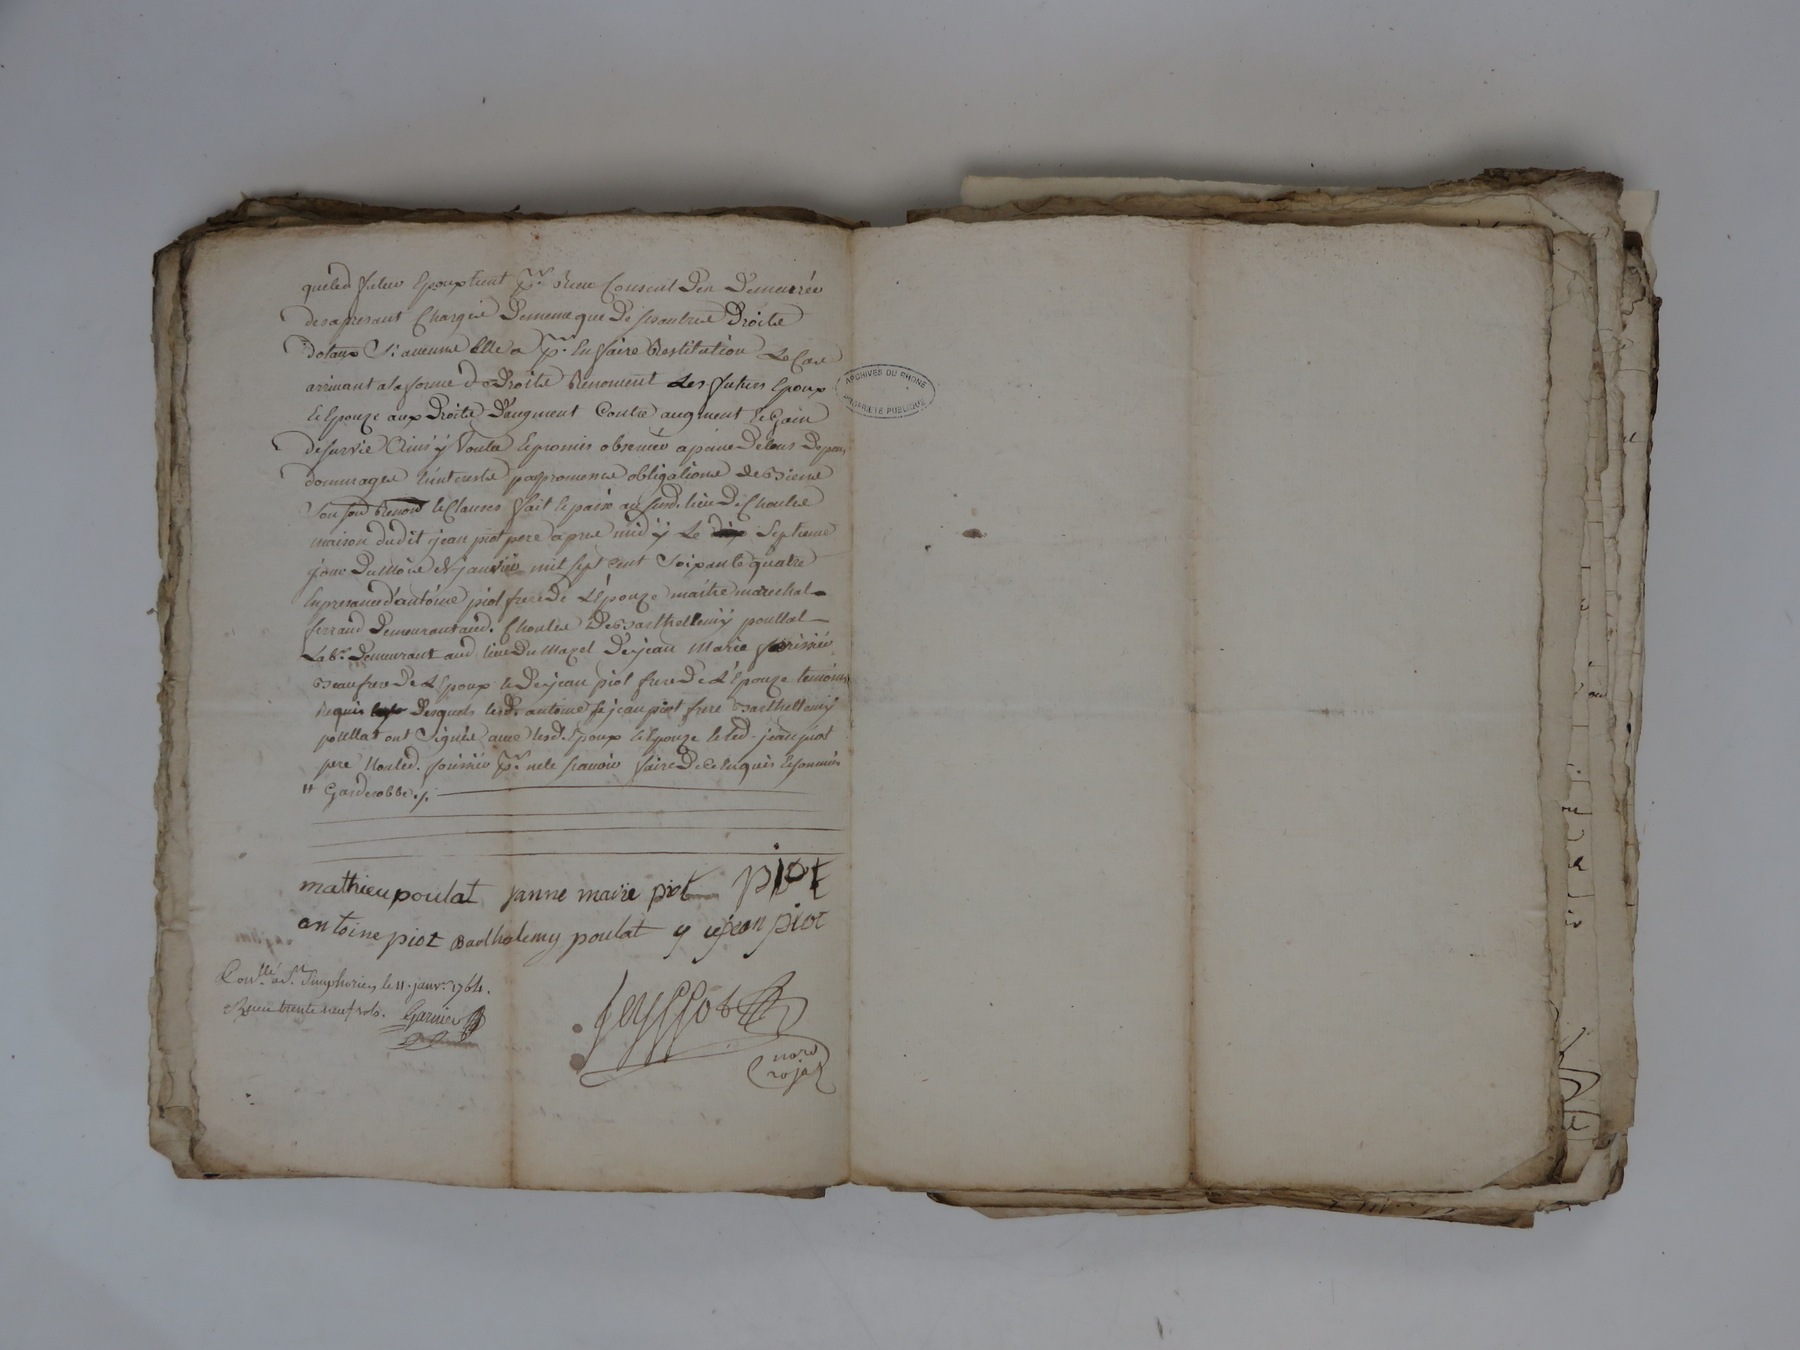 queled futur Epoux tient pr. Reçu Consent d'en demeurée
desapresant Chargée demême que de ses autres Droits
dotaux St. avenue Elle a pr. En faire Restitution Le Cas
arrivant a la forme de Droits Renoncent Les futurs Epoux
Et Epouze aux Droits d'augment Contre augment Et Gain
de survie Ainsi y Voulu Et promis observer a paine de tous depans
dommages Et interests par promesse obligations de Biens
renond et Clauses fait Et passé au susd. lieu de Choulie
maison dudit jean piot pere apres midy Le Septieme
jour du mois de janvier mil sept cent soixante quatre
En presance d'antoine piot frere de L'Epouze maitre marechal
ferrand demeurant aud. Choulie de Barthellemy poullat
Labr. demeurant aud. lieu du Mazel de jean Marie
Beaufrere de L'Epoux et de jean piot frere de L'Epouze temoins
Requis desquels lesd. antoine et jean piot frere Barthellemy
poullat ont Signés avec lesd. Epoux Et Epouze et led. jean piot
pere Non led. pr. ne le scavoir faire de ce Enquis Et sommés
" Garderobbe ./.
mathieu poulat janne marie piot piot
antoine piot Barthelemy poulat jean piot
Conllé a St. Simphorien le 11. janvr. 1764.
Reçu trente neuf sols. Garnier
nore
royal
ARCHIVES DU RHONE
PROPRIETE PUBLIQUE